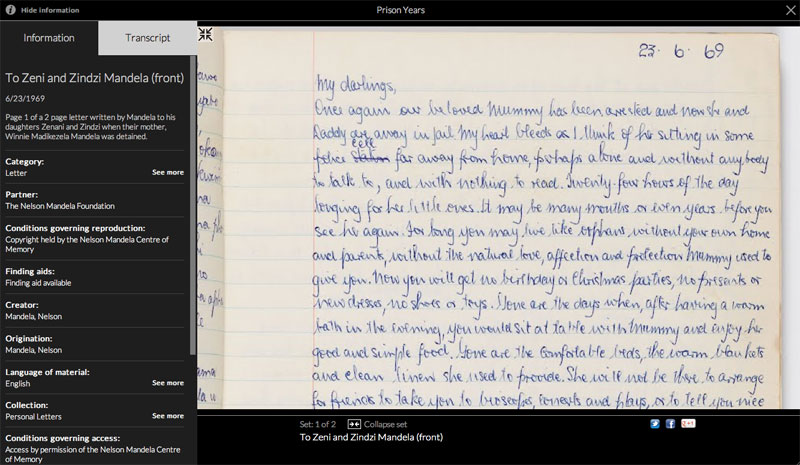 Hide information
Prison Years
Information
Transcript
To Zeni and Zindzi Mandela (front)
6/23/1969
Page 1 of a 2 page letter written by Mandela to his
daughters Zenani and Zindzi when their mother,
Winnie Madikezela Mandela was detained.
Category:
Letter
See more
Partner:
The Nelson Mandela Foundation
Conditions governing reproduction:
Copyright held by the Nelson Mandela Centre of
Memory
Finding aids:
Finding aid available
Creator:
Mandela, Nelson
Origination:
Mandela, Nelson
Language of material:
English
See more
Collection:
Personal Letters
See more
Conditions governing access:
Access by permission of the Nelson Mandela Centre
of Memory
23. 6. 69
My darlings,
Once again our beloved Mummy has been arrested and now she and
Daddy are away in jail. My heart bleeds as I think of her sitting in some
cell
police station far away from home, perhaps alone and without anybody
to talk to, and with nothing to read. Twenty-four hours of the day
longing for her little ones. It may be many months or even years before you
see her again. For long you may live like orphans, without your own home
and parents, without the natural love, affection and protection Mummy used to
give you. Now you will get no birthday or Christmas parties, no presents or
new dresses, no shoes or toys. Gone are the days when, after having a warm
bath in the evening, you would sit at table with Mummy and enjoy her
good and simple food. Gone are the comfortable beds, the warm blankets
and clean linen she used to provide. She will not be there to arrange
for friends to take you to bioscopes, concerts and plays, or to tell you nice
Set: 1 of 2
Collapse set
To Zeni and Zindzi Mandela (front)